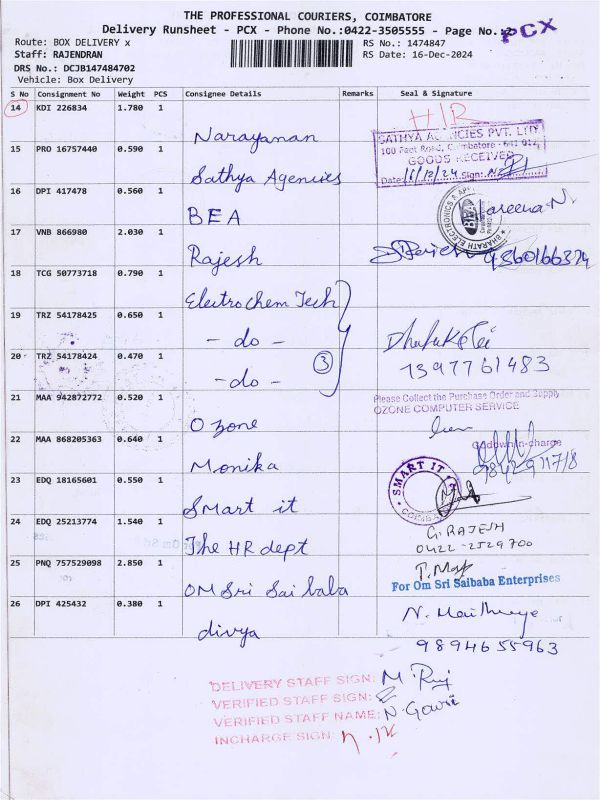 THE PROFESSIONAL COURIERS, COIMBATORE
Delivery Runsheet - PCX - Phone No.:0422-3505555 - Page No.:2
PCX
Route: BOX DELIVERY x
RS No.: 1474847
Staff: RAJENDRAN
RS Date: 16-Dec-2024
DRS No.: DCJB147484702
Vehicle: Box Delivery
S No Consignment No Weight PCS Consignee Details Remarks Seal & Signature
14 KDI 226834 1.780 1 Narayanan
HR
15 PRO 16757440 0.590 1 Sathya Agencies
SATHYA AGENCIES PVT. LTD
100 Feet Road, Coimbatore - 641 012
GOODS RECEIVED
Date: Sign:
16 DPI 417478 0.560 1 BEA
BHARATH ELECTRONICS &
BEA
17 VNB 866980 2.030 1 Rajesh
18 TCG 50773718 0.790 1 Electrochem Tech
19 TRZ 54178425 0.650 1 - do -
20 TRZ 54178424 0.470 1 - do - 3
1397761483
21 MAA 942872772 0.520 1 Ozone
Please Collect the Purchase Order and Supply
OZONE COMPUTER SERVICE
Godown In-charge
22 MAA 868205363 0.640 1 Monika
23 EDQ 18165601 0.550 1 Smart it
SMART IT
24 EDQ 25213774 1.540 1 The HR dept
G. RAJESH
0422-2529700
25 PNQ 757529098 2.850 1 OM Sri Sai baba
For Om Sri Saibaba Enterprises
26 DPI 425432 0.380 1 divya
9894655963
DELIVERY STAFF SIGN:
VERIFIED STAFF SIGN:
VERIFIED STAFF NAME: N. Gowri
INCHARGE SIGN: